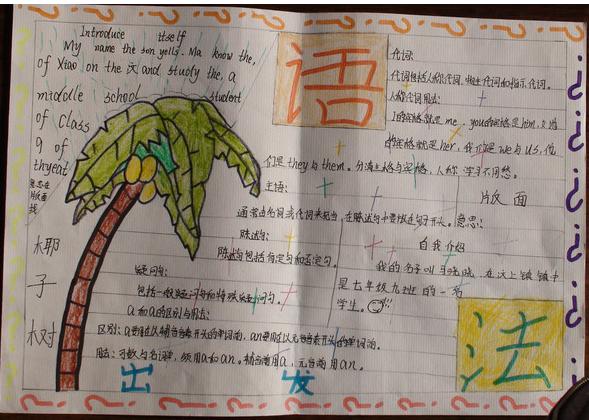 Introduce itself
My name the son yells. Ma know the,
of Xiao on the 汶 and study the, a
middle school student
of Class
9 of
thryent
意思在
片反面
找
椰
子
树
语
代词:
代词包括人称代词、物主代词和指示代词。
人称代词用法:
I的宾格就是me、you的宾格是him、
的宾格就是her、我们是we与us、他
们是they与them。分清主格与宾格,人称
主语:
通常由名词或代词来担当,在陈述句中要放在句子开头。意思:
陈述句:
陈述句包括肯定句和否定句。
疑问句:
包括一般疑问句和特殊疑问句。
a和an的区别与用法:
区别:a要用在以辅音音素开头的单词前,an要用在以元音音素开头的单词前。
用法:可数与名词单,须用a和an。辅音前用a,元音前用an。
版面
自我介绍
我的名子叫 在汶上镇镇中
是七年级九班的一名
学生。
法
出发